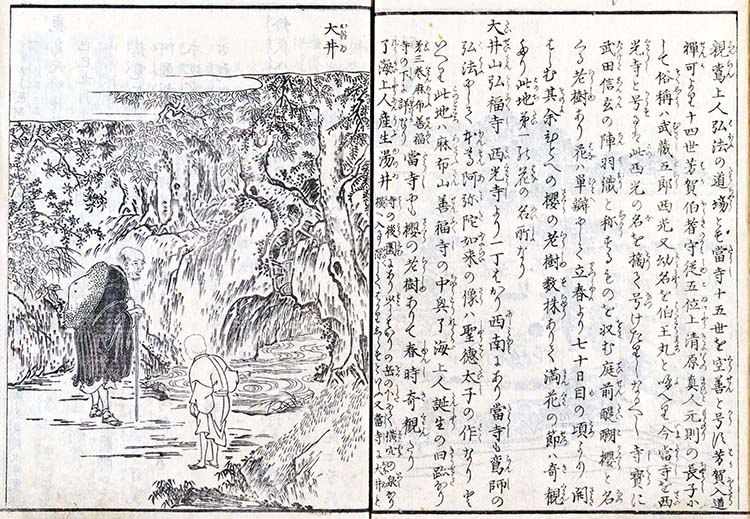 親鸞上人弘法の道場なり當寺十五世を空善と号に芳賀入道
禅可より十四世芳賀伯耆守従五位上清原真人元則の長子に
して俗稱ハ武蔵五郎西光又幼名を伯王丸と今當寺を西
光寺と号るも此西光の名を摘て号けたるなるへし寺寶に
武田信玄の陣羽織と称するものを収む庭前醍醐櫻と名
くる老樹あり花ハ單瓣にして立春より七十日目の頃より開
はしむ其余もひとへの櫻の老樹数株ありて満花の節ハ奇観
たり此地第一の花の名所なり
大井山弘福寺 西光寺より一丁はかり西南にあり當寺も鸞師の
弘法にして本尊阿弥陀如来の像ハ聖徳太子の作なりと
いへり此地ハ麻布山善福寺の中興了海上人誕生の旧跡なり
第三巻麻布善福寺の下に詳なり 當寺にも櫻の老樹ありて春時奇観たり
了海上人産生湯井 寺の後園にあり 當寺を大井と
大井